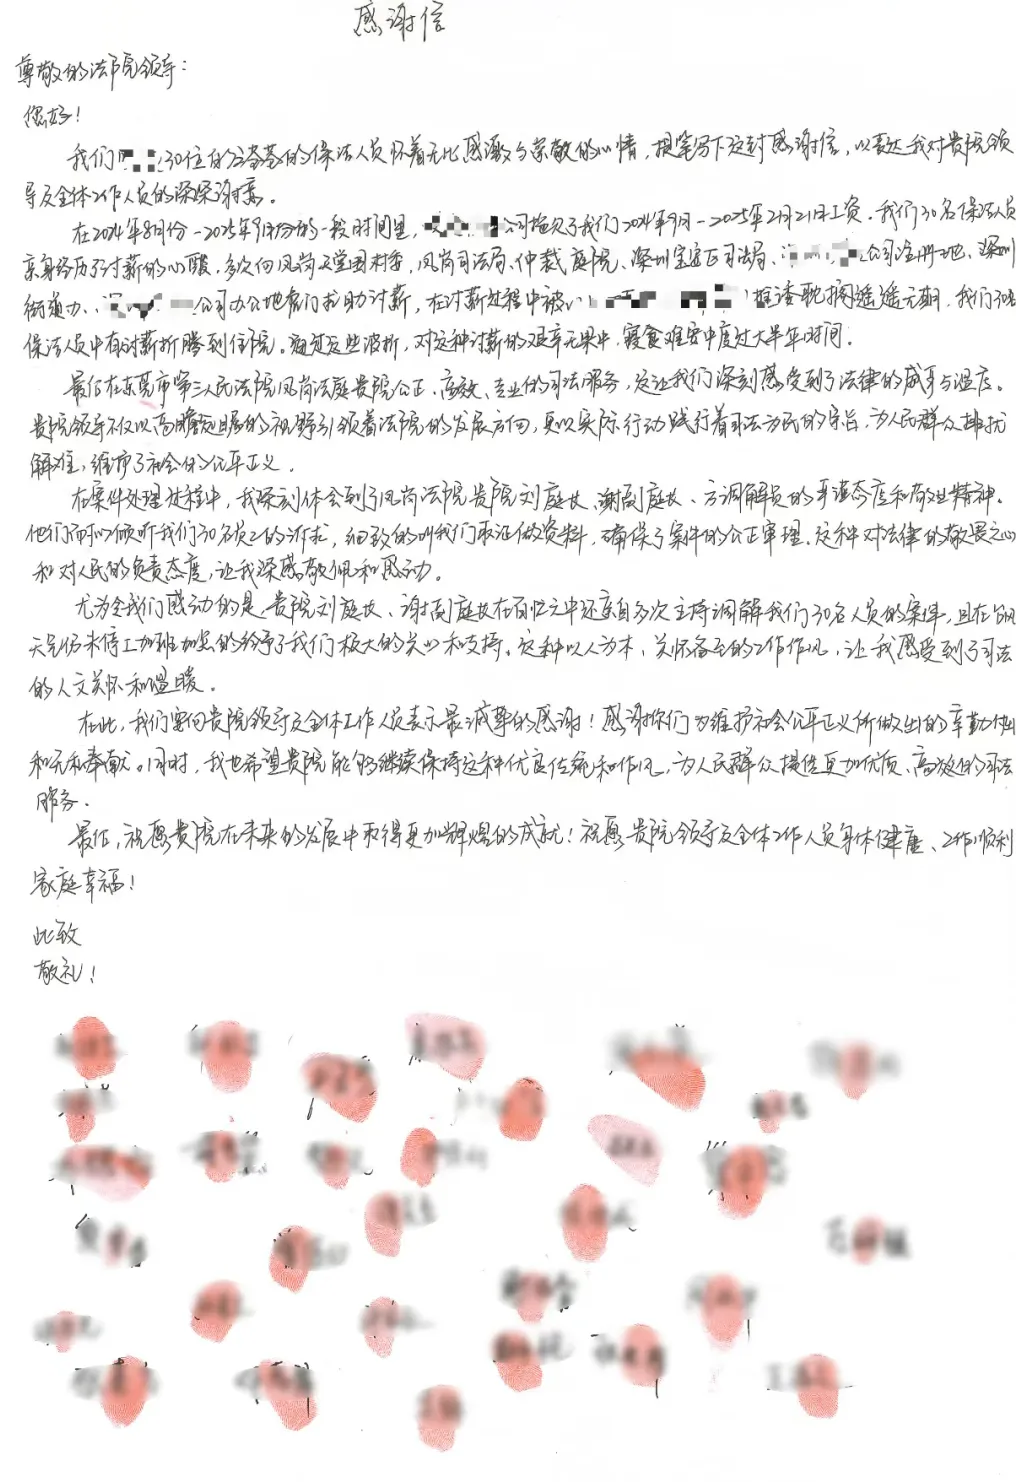 感谢信
尊敬的法院领导:
您好!
我们30位的保洁人员怀着无比感激与崇敬的心情,提笔写下这封感谢信,以表达我对贵院领
导及全体工作人员的深深谢意。
在2024年8月份-2025年的一段时间里,公司拖欠了我们2024年9月-2025年2月21日工资.我们30名保洁人员
亲身经历了讨薪的心酸,多次向凤岗天堂围村委,凤岗司法局、仲裁庭院、深圳宝安区司法局、公司注册地、深圳
街道办、公司办公地部门求助讨薪,在讨薪过程中被推诿耽搁遥遥无期,我们30名
保洁人员中有讨薪折腾到住院。通过这些波折,对这种讨薪的艰辛无果中,寝食难安中度过大半年时间.
最后在东莞市第三人民法院凤岗法庭贵院公正、高效、专业的司法服务,这让我们深刻感受到了法律的威严与温度。
贵院领导不仅以高瞻远瞩的视野引领着法院的发展方向,更以实际行动践行着司法为民的宗旨,为人民群众排忧
解难,维护了社会的公平正义.
在案件处理过程中,我深刻体会到了凤岗法院贵院刘庭长、谢副庭长、方调解员的严谨态度和敬业精神.
他们耐心倾听我们30名员工的诉求,细致的叫我们取证做资料,确保了案件的公正审理.这种对法律的敬畏之心
和对人民的负责态度,让我深感敬佩和感动。
尤为令我们感动的是,贵院刘庭长、谢副庭长在百忙之中还亲自多次主持调解我们30名人员的案件,且在台风
天气仍未停工加班加点的给予了我们极大的关心和支持。这种以人为本、关怀备至的工作作风,让我感受到了司法
的人文关怀和温暖。
在此,我们要向贵院领导及全体工作人员表示最诚挚的感谢!感谢你们为维护社会公平正义所做出的辛勤付出
和无私奉献。同时,我也希望贵院能够继续保持这种优良传统和作风,为人民群众提供更加优质、高效的司法
服务.
最后,祝愿贵院在未来的发展中取得更加辉煌的成就!祝愿贵院领导及全体工作人员身体健康、工作顺利
家庭幸福!
此致
敬礼!